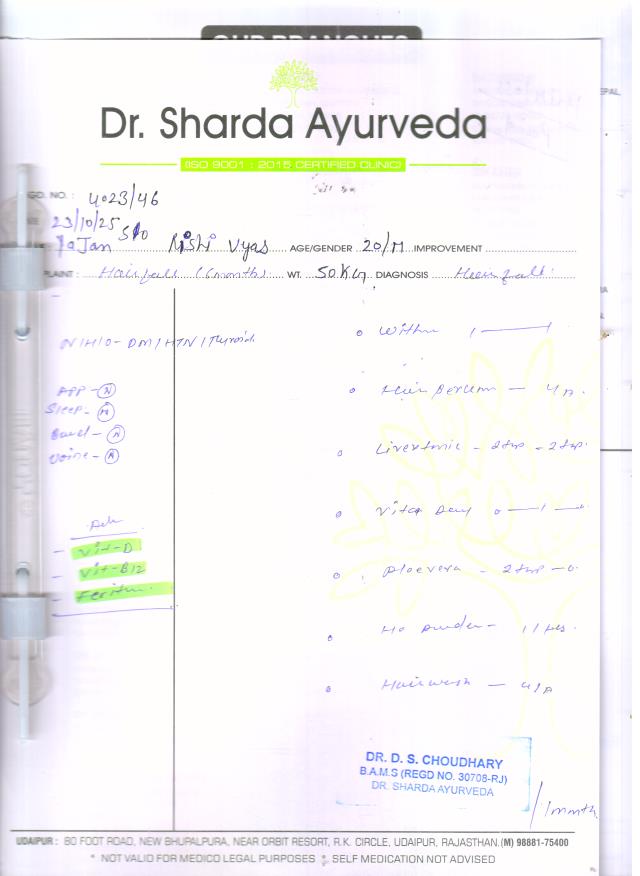 OUR BRANCHES
Dr. Sharda Ayurveda
(ISO 9001 : 2015 CERTIFIED CLINIC)
GD. NO. : 4023/46
23/10/25
Rajan S/o Rishi Vyas AGE/GENDER 20/M IMPROVEMENT
PLAINT : Hairfall (6 months) WT. 50 Kg DIAGNOSIS Hairfall
N/H/O - DM/HTN/Thyroid
APP - N
Sleep - N
Bowel - N
Urine - N
Adv
- Vit-D
- Vit-B12
- Feritin
Hair Serum - L/A
Livertonic - 2tsp - 2tsp
Aloevera - 2tsp - 0
Hairwash - L/A
DR. D. S. CHOUDHARY
B.A.M.S (REGD NO. 30708-RJ)
DR. SHARDA AYURVEDA
/1month
UDAIPUR : 80 FOOT ROAD, NEW BHUPALPURA, NEAR ORBIT RESORT, R.K. CIRCLE, UDAIPUR, RAJASTHAN.(M) 98881-75400
* NOT VALID FOR MEDICO LEGAL PURPOSES * SELF MEDICATION NOT ADVISED